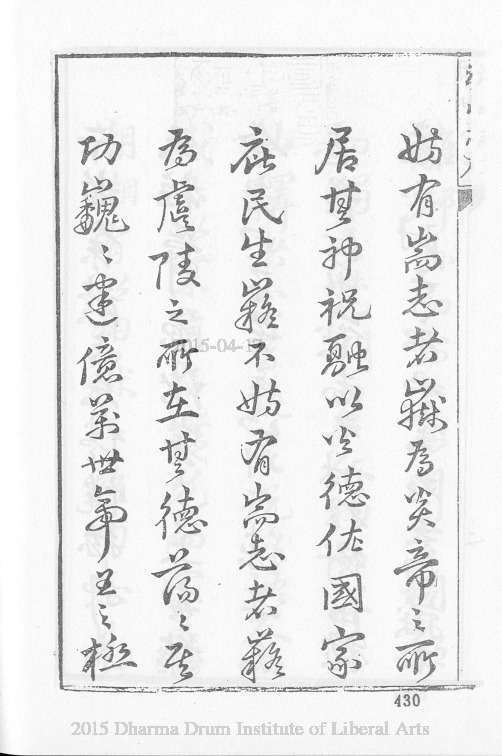 妨有耑志者嶽為炎帝之所
居其神祝融以火德佐國家
庇民生嶷不妨有耑志者嶷
為虞陵之所在其德蕩〻其
功巍〻建億萬世帝王之極
430
2015 Dharma Drum Institute of Liberal Arts